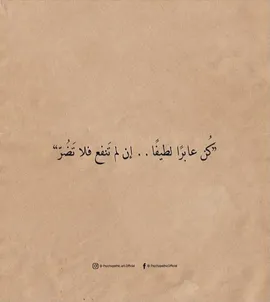 ”كُن عابرًا لطيفًا . . إن لم تَنفع فلا تَضُرّ“